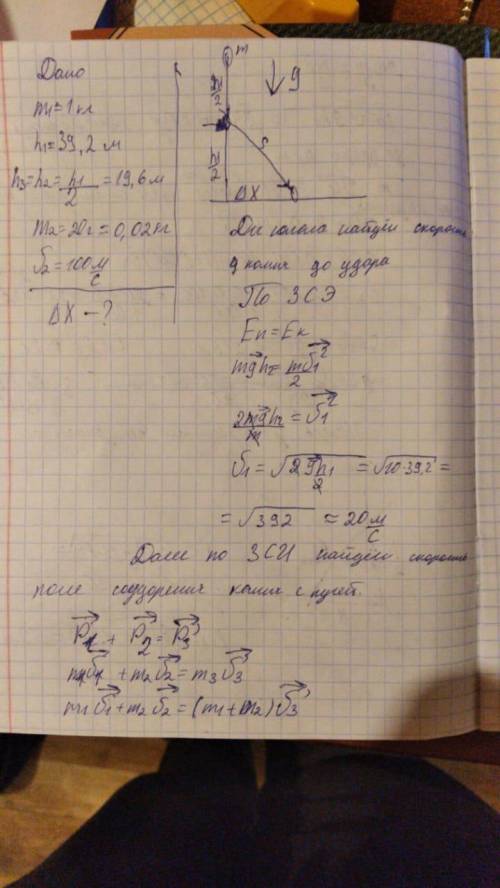 Дано
m1 = 1 кг
h1 = 39,2 м
h3 = h2 = h1/2 = 19,6 м
m2 = 20г = 0,02 кг
υ2 = 100 м/с
ΔX - ?
m
h1/2
g
h1/2
S
ΔX
найдём скорость
камня до удара
По ЗСЭ
Еп = Ек
mgh2 = mυ1²/2
2mgh2/m = υ1²
υ1 = √(2gh1/2) = √(10·39,2) =
= √392 ≈ 20 м/с
Далее по ЗСИ найдём скорость
после соударения камня с пулей.
P1 + P2 = P3
m1υ1 + m2υ2 = m3υ3
m1υ1 + m2υ2 = (m1 + m2)υ3